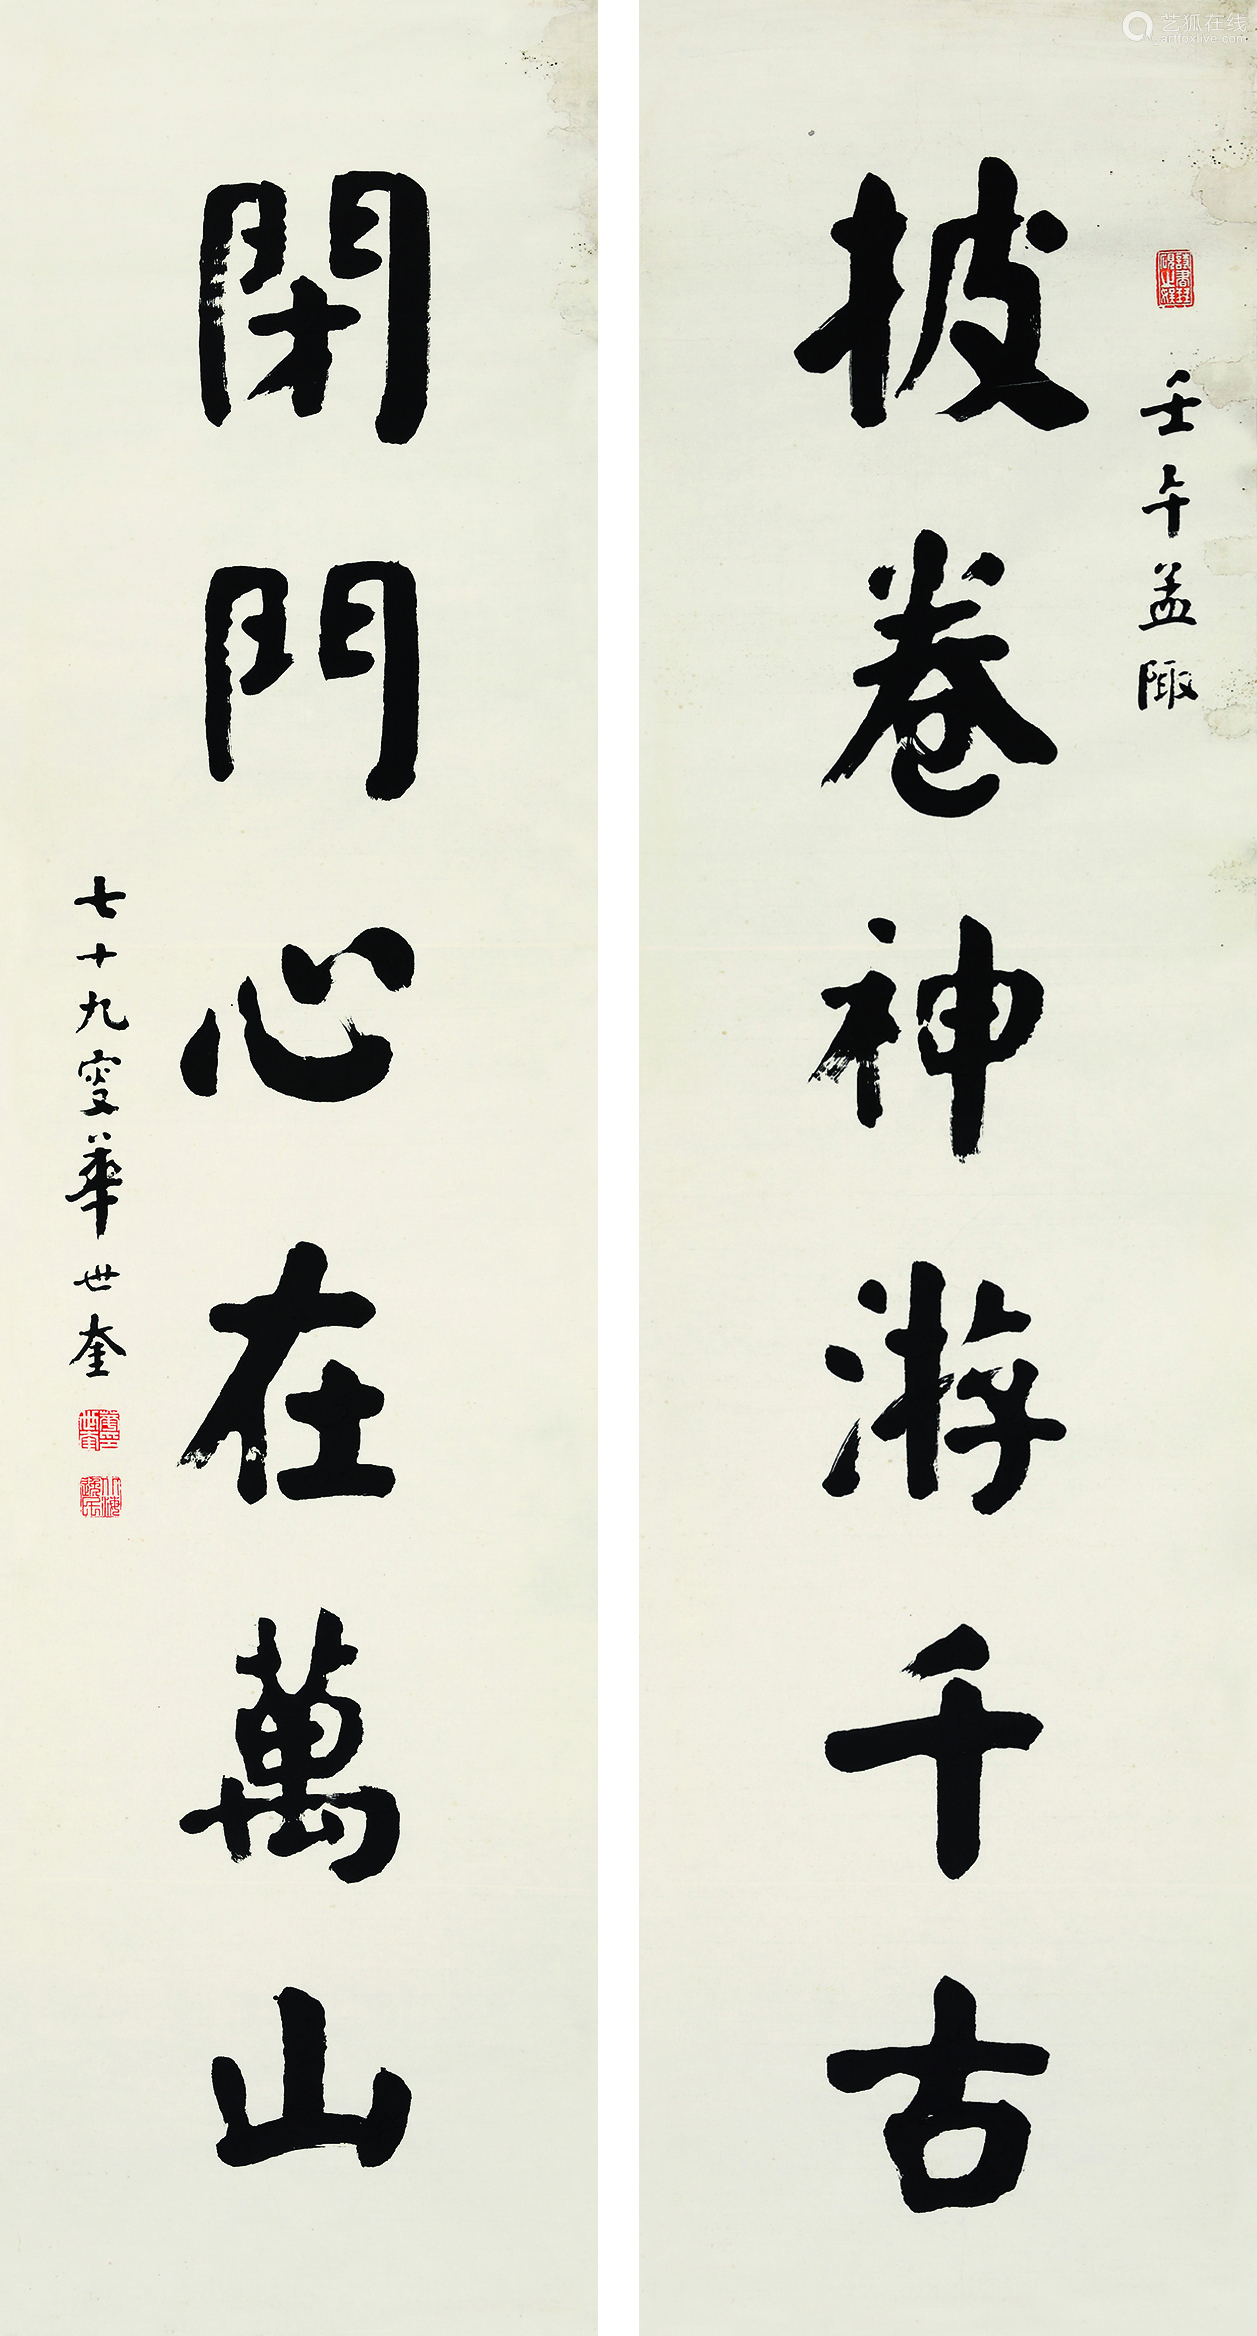 壬午孟陬
披卷神游千古
閉門心在萬山
七十九叟華世奎
艺狐在线
artfoxlive.com